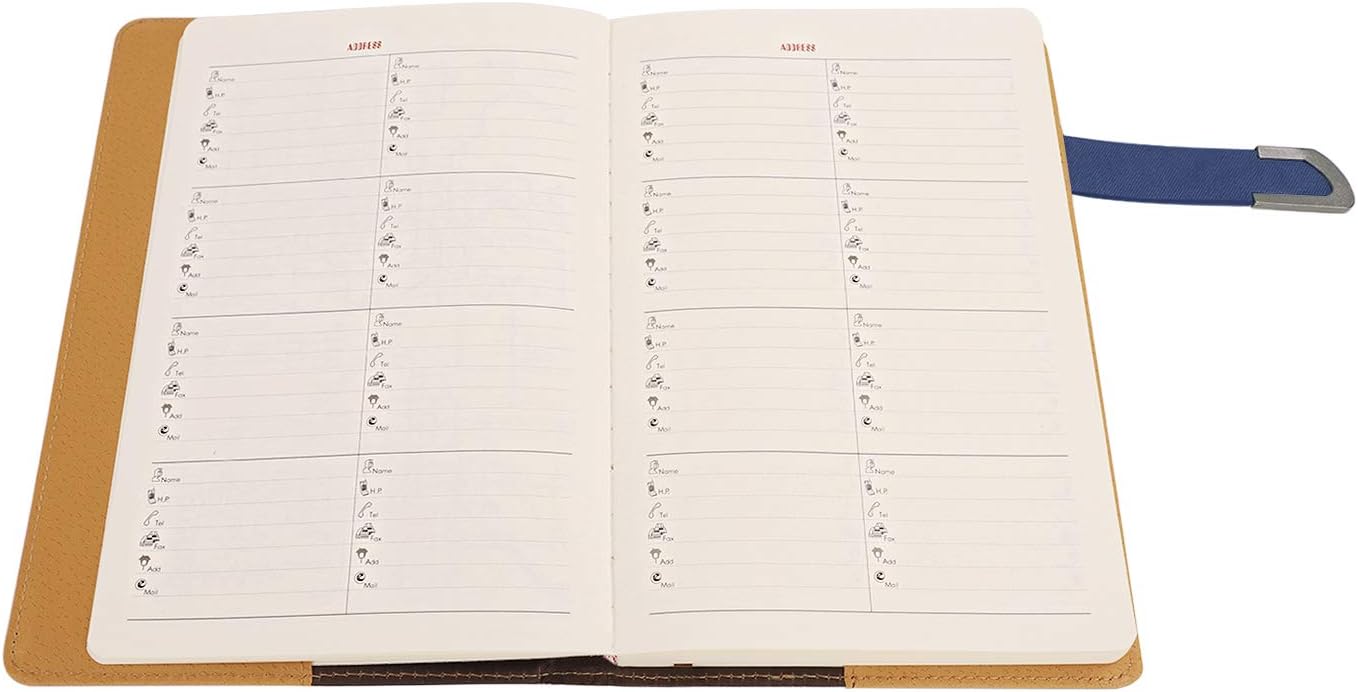 ADDRESS
Name
H.P.
Tel
Fax
Add
Mail
Name
H.P.
Tel
Fax
Add
Mail
Name
H.P.
Tel
Fax
Add
Mail
Name
H.P.
Tel
Fax
Add
Mail
Name
H.P.
Tel
Fax
Add
Mail
Name
H.P.
Tel
Fax
Add
Mail
Name
H.P.
Tel
Fax
Add
Mail
Name
H.P.
Tel
Fax
Add
Mail
ADDRESS
Name
H.P.
Tel
Fax
Add
Mail
Name
H.P.
Tel
Fax
Add
Mail
Name
H.P.
Tel
Fax
Add
Mail
Name
H.P.
Tel
Fax
Add
Mail
Name
H.P.
Tel
Fax
Add
Mail
Name
H.P.
Tel
Fax
Add
Mail
Name
H.P.
Tel
Fax
Add
Mail
Name
H.P.
Tel
Fax
Add
Mail